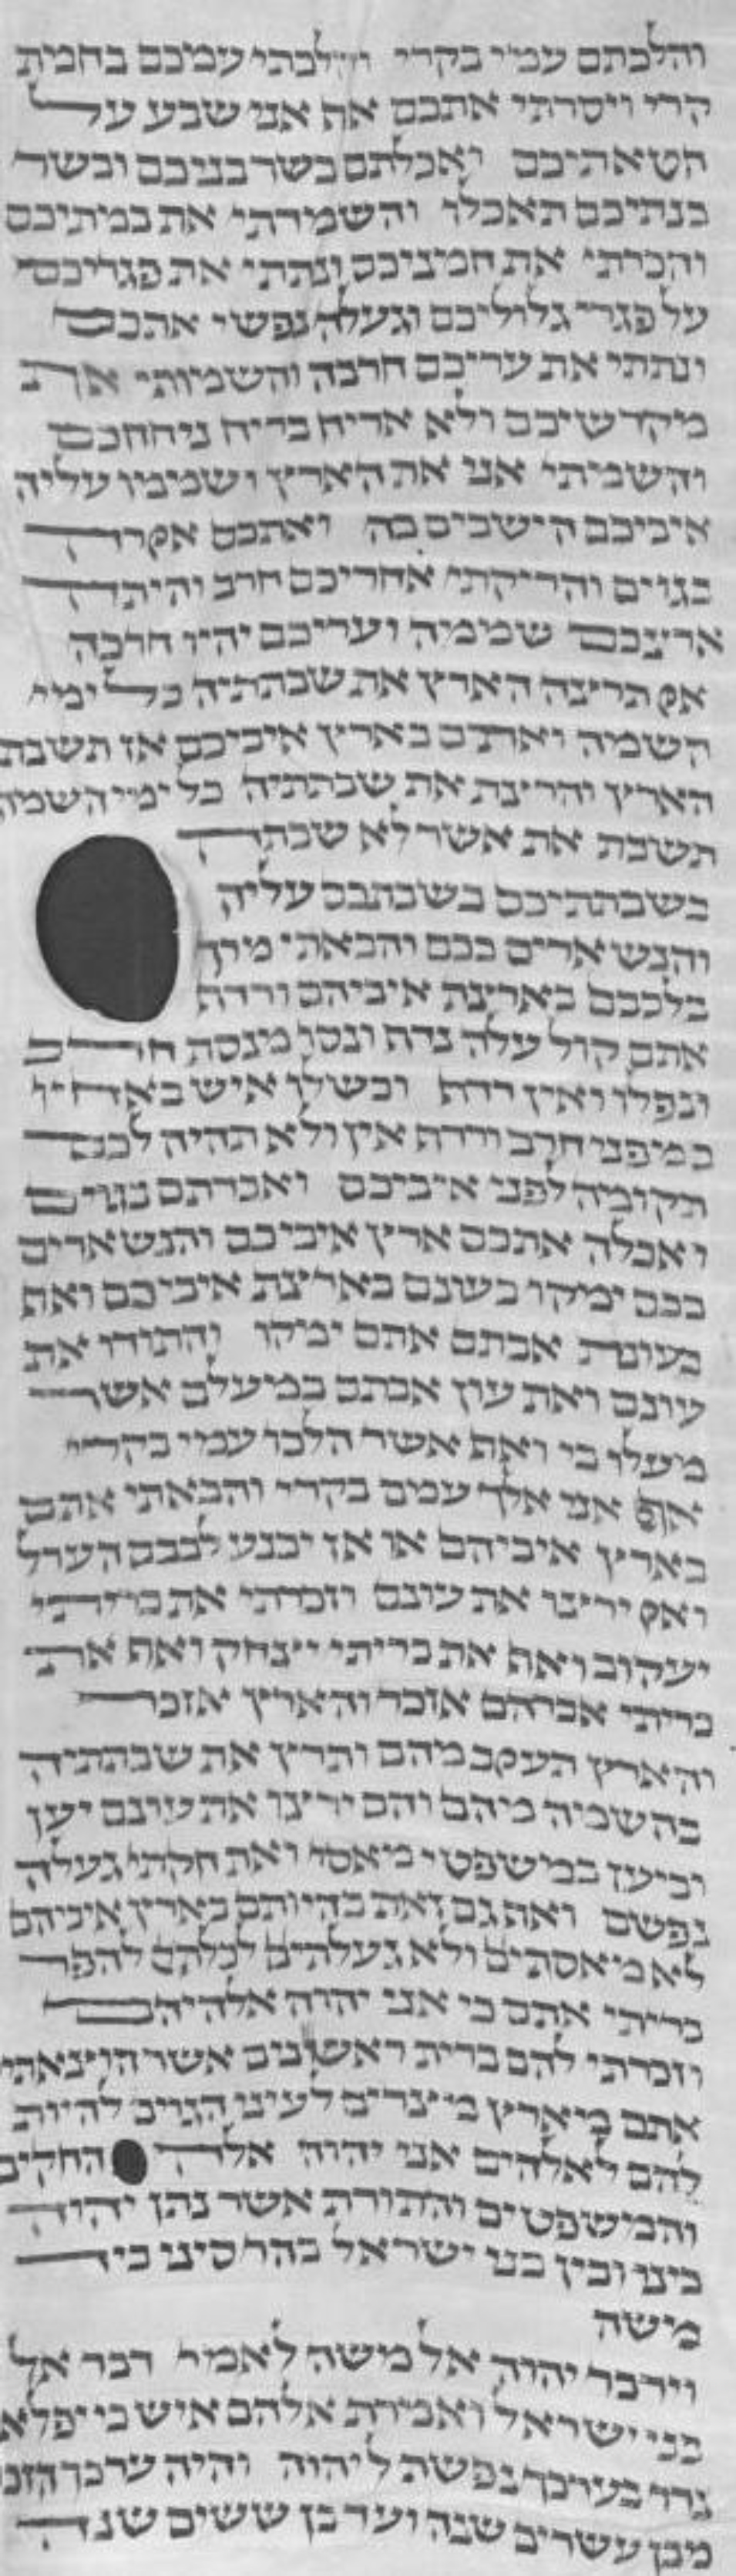 והלכתם עמי בקרי והלכתי עמכם בחמת
קרי ויסרתי אתכם אף אני שבע על
חטאתיכם ואכלתם בשר בניכם ובשר
בנתיכם תאכלו והשמדתי את במתיכם
והכרתי את חמניכם ונתתי את פגריכם
על פגרי גלוליכם וגעלה נפשי אתכם
ונתתי את עריכם חרבה והשמותי את
מקדשיכם ולא אריח בריח ניחחכם
והשמתי אני את הארץ ושממו עליה
איביכם הישבים בה ואתכם אזרה
בגוים והריקתי אחריכם חרב והיתה
ארצכם שממה ועריכם יהיו חרבה
אז תרצה הארץ את שבתתיה כל ימי
השמה ואתם בארץ איביכם אז תשבת
הארץ והרצת את שבתתיה כל ימי השמה
תשבת את אשר לא שבתה
בשבתתיכם בשבתכם עליה
והנשארים בכם והבאתי מרך
בלבבם בארצת איביהם ורדף
אתם קול עלה נדף ונסו מנסת חרב
ונפלו ואין רדף וכשלו איש באחיו
כמפני חרב ורדף אין ולא תהיה לכם
תקומה לפני איביכם ואבדתם בגוים
ואכלה אתכם ארץ איביכם והנשארים
בכם ימקו בעונם בארצת איביכם ואף
בעונת אבתם אתם ימקו והתודו את
עונם ואת עון אבתם במעלם אשר
מעלו בי ואף אשר הלכו עמי בקרי
אף אני אלך עמם בקרי והבאתי אתם
בארץ איביהם או אז יכנע לבבם הערל
ואז ירצו את עונם וזכרתי את בריתי
יעקוב ואף את בריתי יצחק ואף את
בריתי אברהם אזכר והארץ אזכר
והארץ תעזב מהם ותרץ את שבתתיה
בהשמה מהם והם ירצו את עונם יען
וביען במשפטי מאסו ואת חקתי געלה
נפשם ואף גם זאת בהיותם בארץ איביהם
לא מאסתים ולא געלתים לכלתם להפר
בריתי אתם כי אני יהוה אלהיהם
וזכרתי להם ברית ראשנים אשר הוצאתי
אתם מארץ מצרים לעיני הגוים להיות
להם לאלהים אני יהוה אלה החקים
והמשפטים והתורת אשר נתן יהוה
בינו ובין בני ישראל בהר סיני ביד
משה
וידבר יהוה אל משה לאמר דבר אל
בני ישראל ואמרת אלהם איש כי יפלא
נדר בערכך נפשת ליהוה והיה ערכך הזכר
מבן עשרים שנה ועד בן ששים שנה